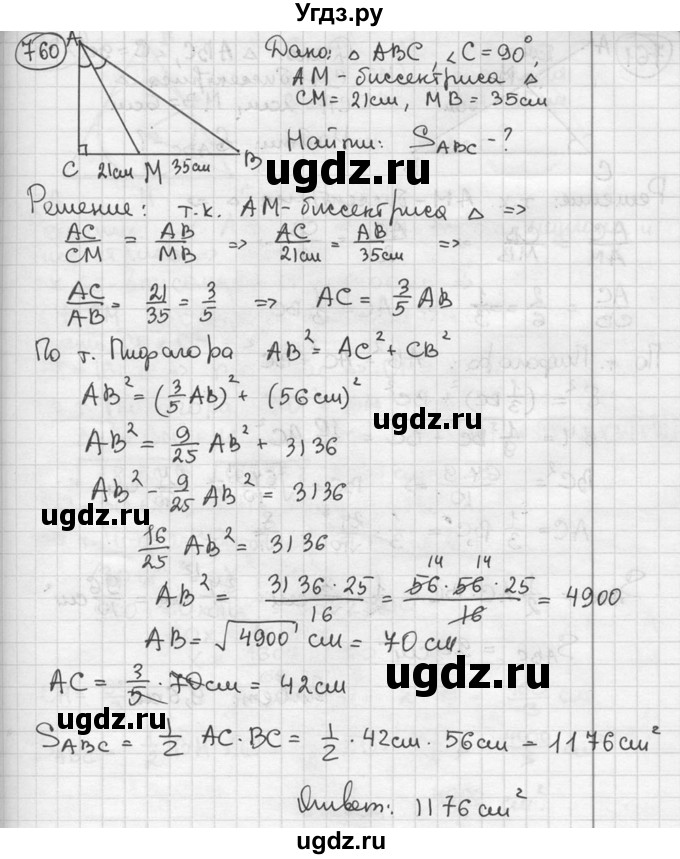 Угдз.ру
760
A
C 21см M 35см B
Дано: △ ABC, ∠C = 90°,
AM - биссектриса △
CM = 21см, MB = 35см
Найти: S_ABC - ?
ugdz.ru
Решение: т.к. AM - биссектриса △ =>
AC/CM = AB/MB => AC/21см = AB/35см =>
ugdz.ru
AC/AB = 21/35 = 3/5 => AC = 3/5 AB
По т. Пифагора AB² = AC² + CB²
AB² = (3/5 AB)² + (56см)²
ugdz.ru
AB² = 9/25 AB² + 3136
AB² - 9/25 AB² = 3136
ugdz.ru
16/25 AB² = 3136
AB² = 3136·25/16 = 56·56·25/16 = 4900
14 14
AB = √4900 см = 70 см.
ugdz.ru
AC = 3/5 · 70см = 42см
ugdz.ru
S_ABC = 1/2 AC·BC = 1/2 · 42см · 56см = 1176см²
ugdz.ru
Ответ: 1176 см²
ugdz.ru